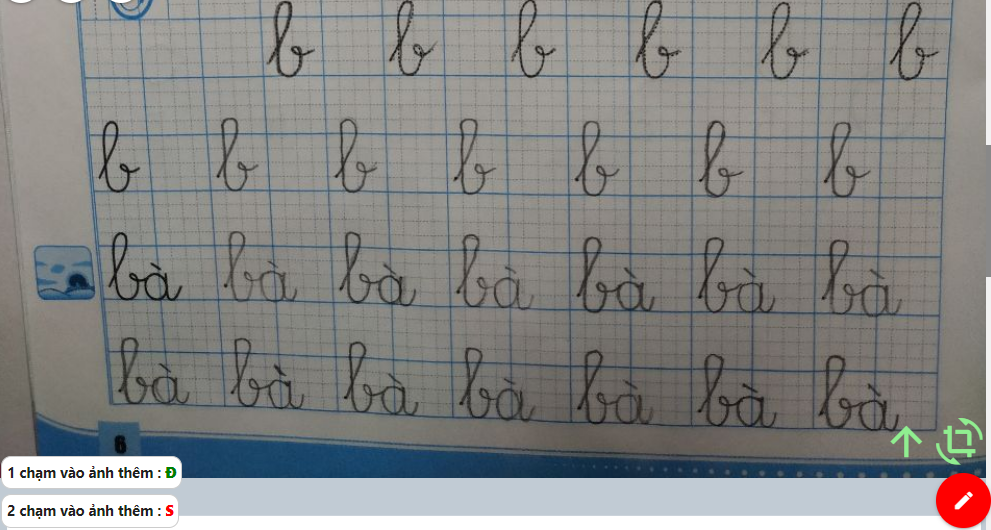 b b b b b b
b b b b b b b
bà bà bà bà bà bà bà
bà bà bà bà bà bà bà
6
1 chạm vào ảnh thêm : Đ
2 chạm vào ảnh thêm : S